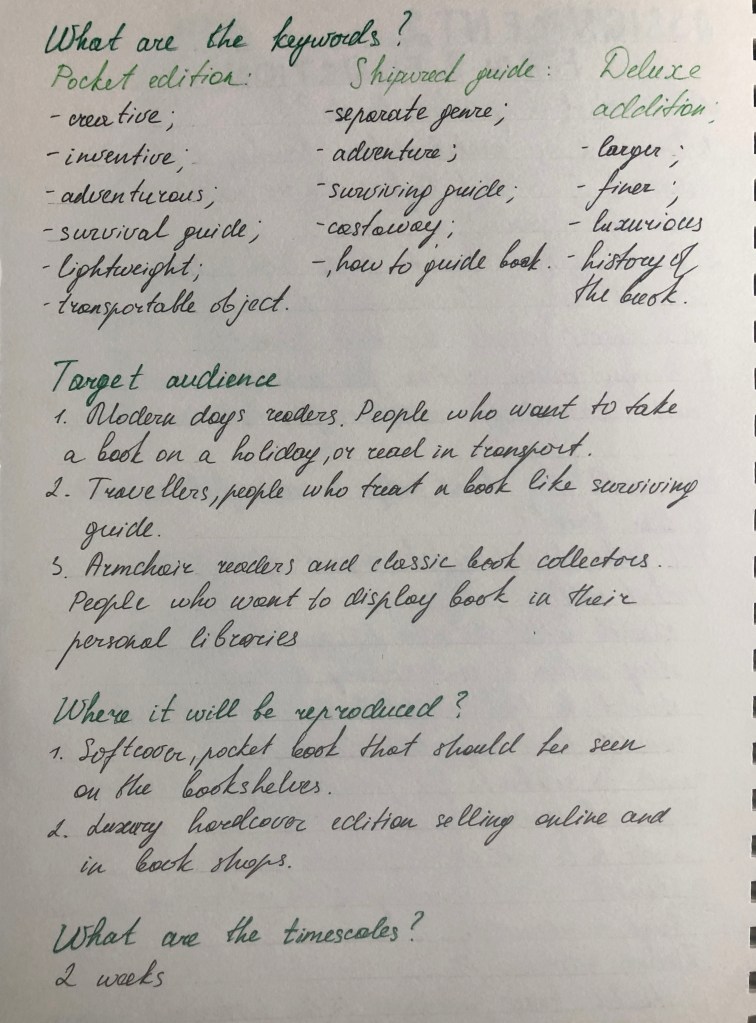 What are the keywords?
Pocket edition:
- creative;
- inventive;
- adventurous;
- survival guide;
- lightweight;
- transportable object.
Shipwreck guide:
- separate genre;
- adventure;
- surviving guide;
- castaway;
- how to guide book.
Deluxe
addition:
- larger;
- finer;
- luxurious
- history of
the book.
Target audience
1. Modern days readers. People who want to take
a book on a holiday, or read in transport.
2. Travellers, people who treat a book like surviving
guide.
3. Armchair readers and classic book collectors.
People who want to display book in their
personal libraries
Where it will be reproduced?
1. Softcover, pocket book that should be seen
on the bookshelves.
2. Luxury hardcover edition selling online and
in book shops.
What are the timescales?
2 weeks